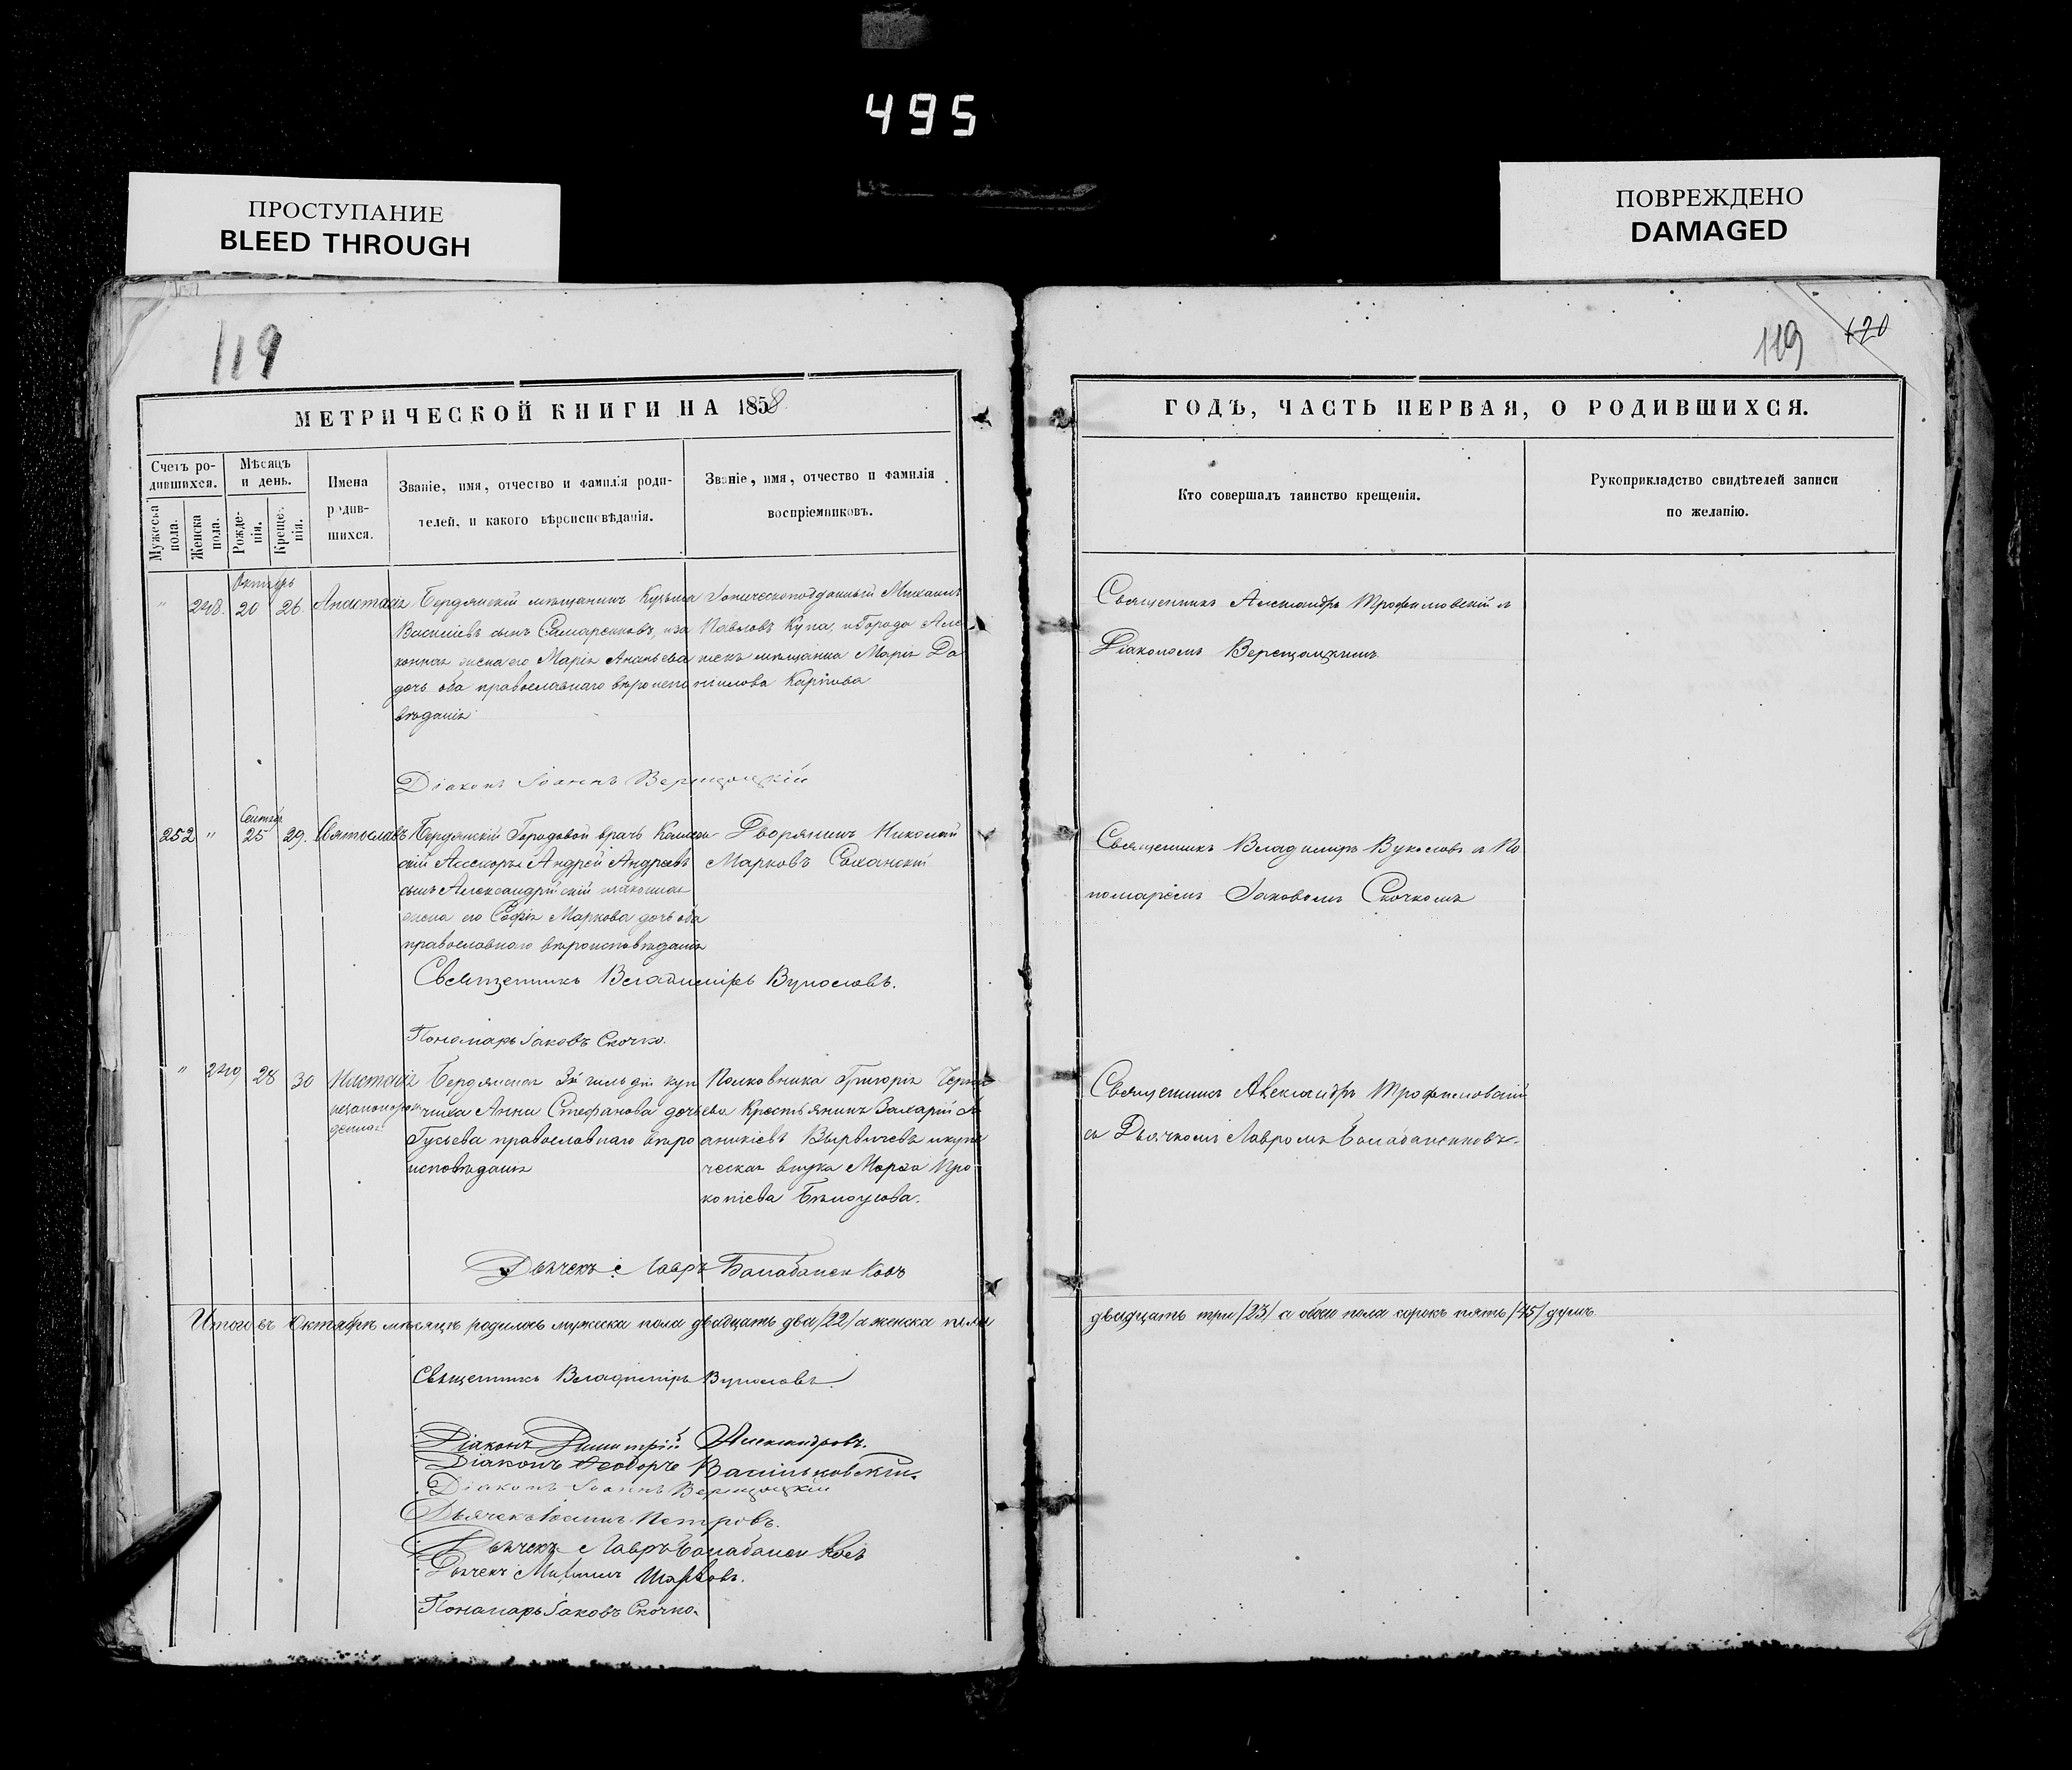 495
ПРОСТУПАНИЕ
BLEED THROUGH
ПОВРЕЖДЕНО
DAMAGED
119
119 120
МЕТРИЧЕСКОЙ КНИГИ НА 1858
ГОДЪ, ЧАСТЬ ПЕРВАЯ, О РОДИВШИХСЯ.
Счетъ ро-
дившихся.
Мужеска
пола.
Женска
пола.
Мѣсяцъ
и день.
Рожде-
нія.
Креще-
нія.
Имена
родив-
шихся.
Званіе, имя, отчество и фамилія роди-
телей, и какого вѣроисповѣданія.
Званіе, имя, отчество и фамилія
воспріемниковъ.
Кто совершалъ таинство крещенія.
Рукоприкладство свидѣтелей записи
по желанію.
Октябрь
" 248. 20 26. Анастасія
Бердянскій мѣщанинъ Кузьма
Василіевъ сынъ Самарсковъ, и за
конная жена его Марія Ананьева
дочь оба православнаго вѣроиспо
вѣданія
Михаилъ
Павловъ Купа, и Города Але
мѣщанка Марія Да
нилова Карпова
Священникъ Александръ Трофимовскій съ
Діакономъ Верещацкимъ
Діаконъ Іоаннъ Верещацкій
Сентяб.
252 " 25 29. Святославъ
Бердянскій Городовой врачъ Коллеж
скій Ассесоръ Андрей Андреевъ
сынъ Александрійскій и законная
жена его Софія Маркова дочь оба
православнаго вѣроисповѣданія
Дворянинъ Николай
Марковъ Соханскій
Священникъ Владиміръ Вуколовъ съ По
номаремъ Іаковомъ Скочкомъ
Священникъ Владиміръ Вуколовъ.
Пономарь Іаковъ Скочко.
" 249 28 30 Анастасія
незаконорож
денная
Бердянская 3й гильдіи куп
чиха Анна Стефанова дочь
Гусьева православнаго вѣро
исповѣданія
Полковника Григорія Черня
ева Крестьянинъ Захарій
аникіевъ Вырвичевъ и купе
ческая внука Марѳа Про
копіева Бѣлоусова.
Священникъ Александръ Трофимовскій
съ Дьячкомъ Лавромъ Балабаненковъ.
Дьячекъ Лавръ Балабаненковъ
Итого въ Октябрѣ мѣсяцѣ родилось мужеска пола двадцать два /22/ а женска пола
двадцать три /23/ а обоего пола сорокъ пять /45/ душъ.
Священникъ Владиміръ Вуколовъ.
Діаконъ Димитрій Александровъ.
Діаконъ Ѳеодоръ Васильковскій.
Діаконъ Іоаннъ Верещацкій
Дьячекъ Іоаннъ Петровъ.
Дьячекъ Лавръ Балабаненковъ
Дьячекъ Михаилъ
Пономарь Іаковъ Скочко.